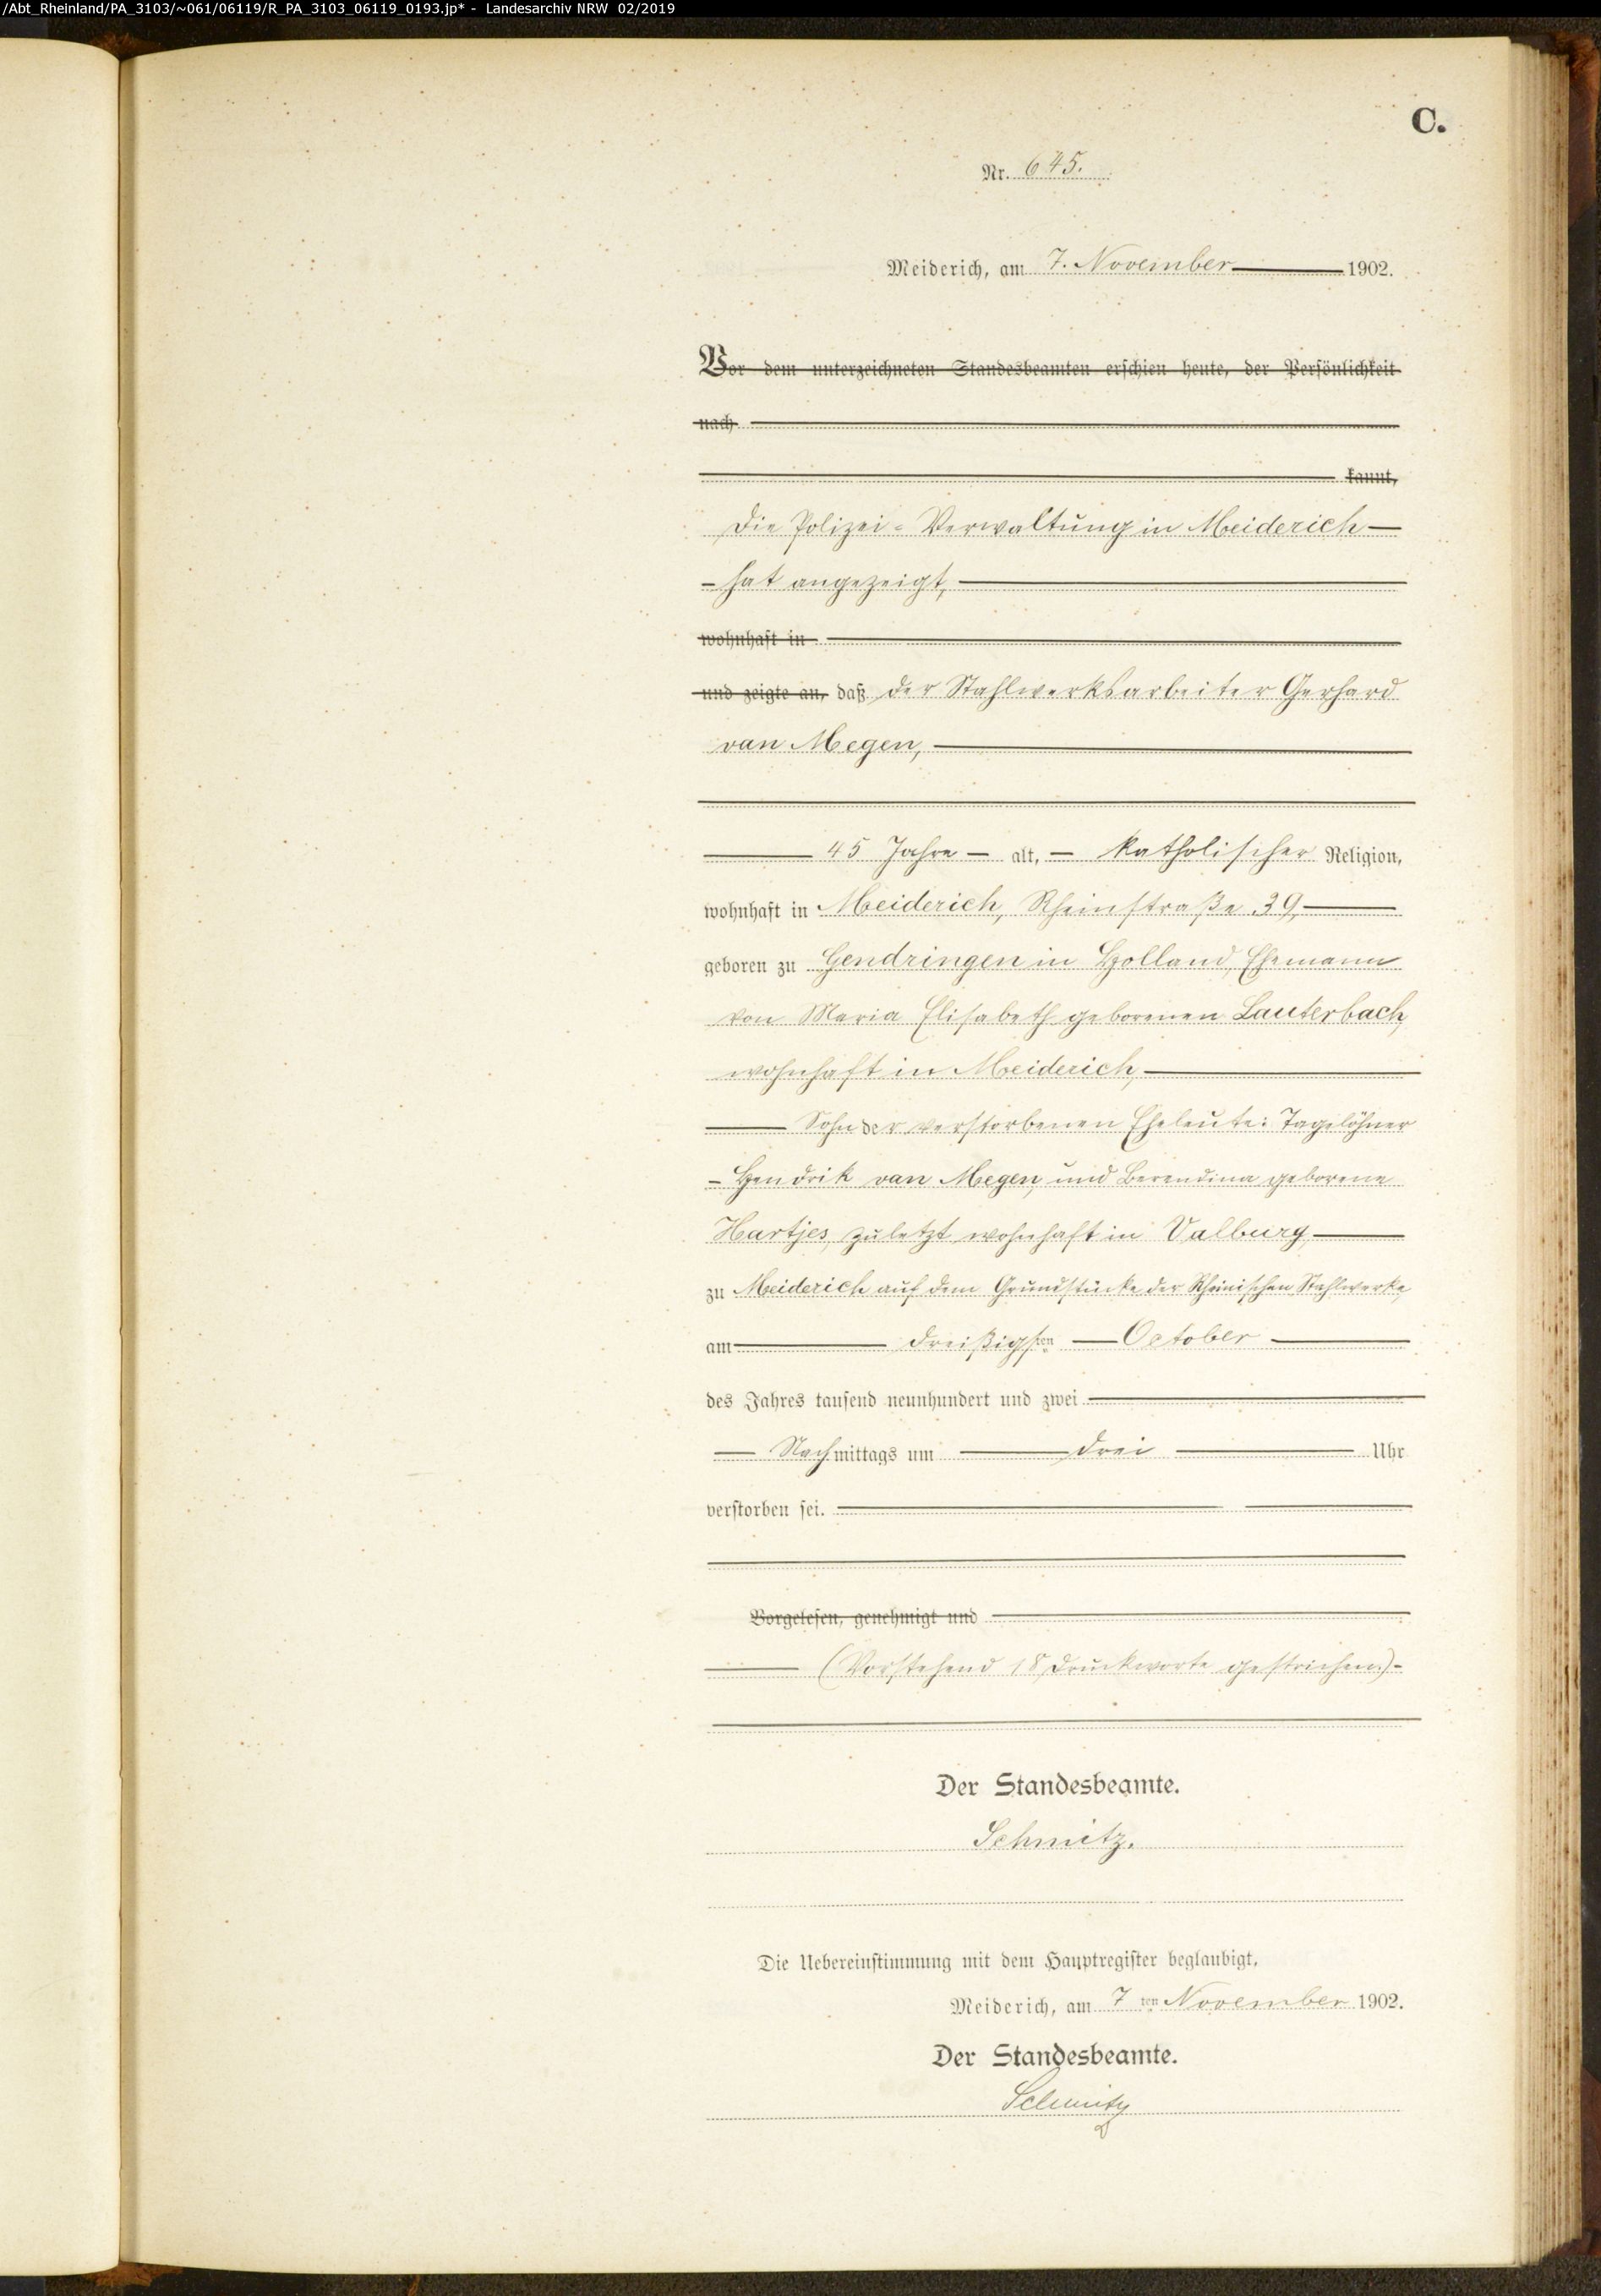 /Abt_Rheinland/PA_3103/~061/06119/R_PA_3103_06119_0193.jp* - Landesarchiv NRW 02/2019
C.
Nr. 645.
Meiderich, am 7. November 1902.
Vor dem unterzeichneten Standesbeamten erschien heute, der Persönlichkeit
nach
kannt,
Die Polizei-Verwaltung in Meiderich
hat angezeigt,
wohnhaft in
und zeigte an, daß der Stahlwerksarbeiter Gerhard
van Megen,
45 Jahre alt, katholischer Religion,
wohnhaft in Meiderich, Rheinstraße 39,
geboren zu Gendringen in Holland, Ehemann
von Maria Elisabeth geborenen Lauterbach,
wohnhaft in Meiderich,
Sohn der verstorbenen Eheleute: Tagelöhner
Hendrik van Megen und Berendina geborene
Hartjes, zuletzt wohnhaft in Valburg,
zu Meiderich auf dem Grundstücke der Rheinischen Stahlwerke,
am dreißigsten October
des Jahres tausend neunhundert und zwei
Nachmittags um drei Uhr
verstorben sei.
Vorgelesen, genehmigt und
(Vorstehend 18 Druckworte gestrichen.)
Der Standesbeamte.
Schmitz.
Die Uebereinstimmung mit dem Hauptregister beglaubigt,
Meiderich, am 7ten November 1902.
Der Standesbeamte.
Schmitz